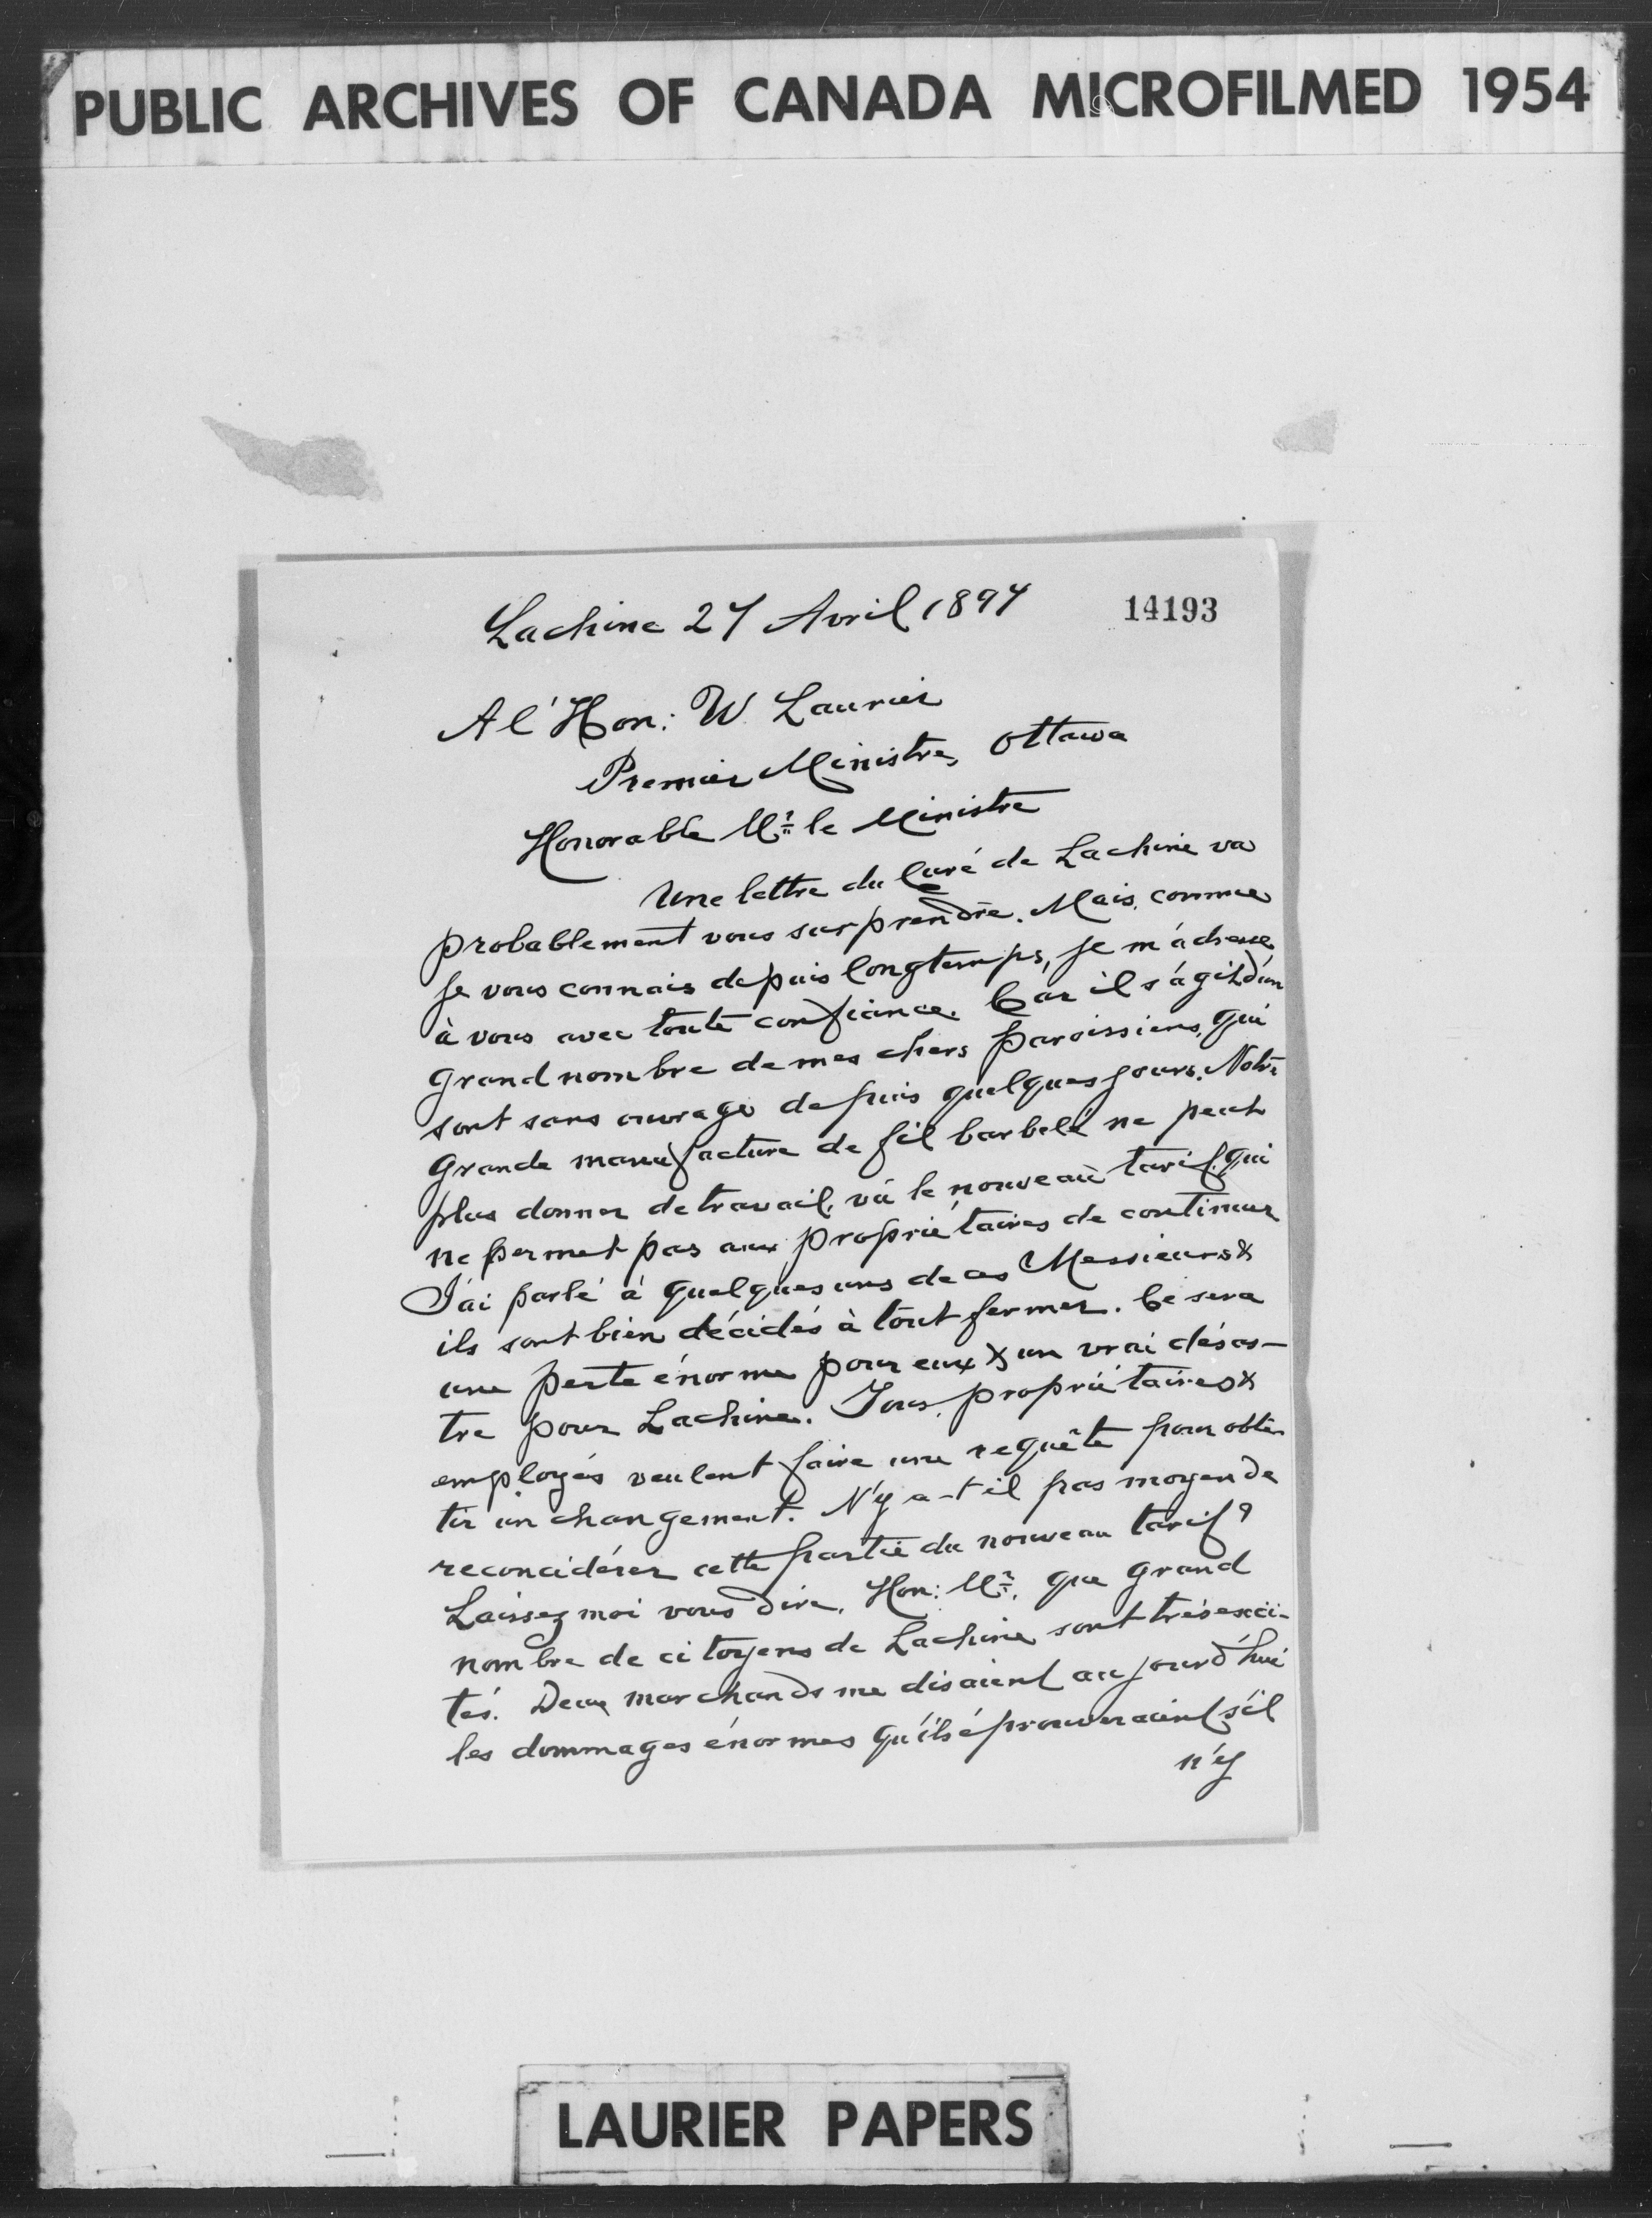 PUBLIC ARCHIVES OF CANADA MICROFILMED 1954
Lachine 27 Avril 1897
14193
A l'Hon: W. Laurier
Premier Ministre, Ottawa
Honorable Mr. le Ministre
Une lettre du Curé de Lachine va
probablement vous surprendre. Mais, comme
je vous connais depuis longtemps, je m'adresse
à vous avec toute confiance. Car il s'agit d'un
grand nombre de mes chers paroissiens, qui
sont sans ouvrage depuis quelques jours. Notre
grande manufacture de fil barbelé ne peut
plus donner de travail, vû le nouveau tarif, qui
ne permet pas aux propriétaires de continuer
J'ai parlé à quelques uns de ces Messieurs &
ils sont bien décidés à tout fermer. Ce sera
une perte énorme pour eux & un vrai désas-
tre pour Lachine. Tous, propriétaires &
employés veulent faire une requête pour obte-
tir un changement. N'y a-t-il pas moyen de
reconcidérer cette partie du nouveau tarif?
Laissez moi vous dire, Hon: Mr. que grand
nombre de citoyens de Lachine sont très exci-
tés. Deux marchands me disaient aujourd'hui
les dommages énormes qu'ils éprouveraient s'il
n'y
LAURIER PAPERS